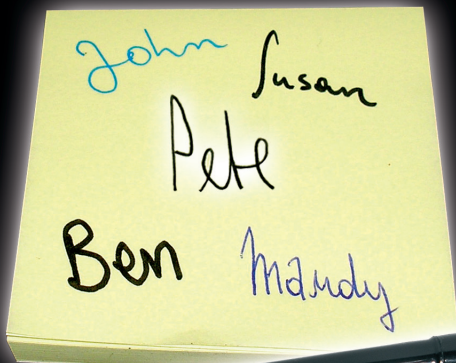 John
Susan
Pete
Ben
Mandy